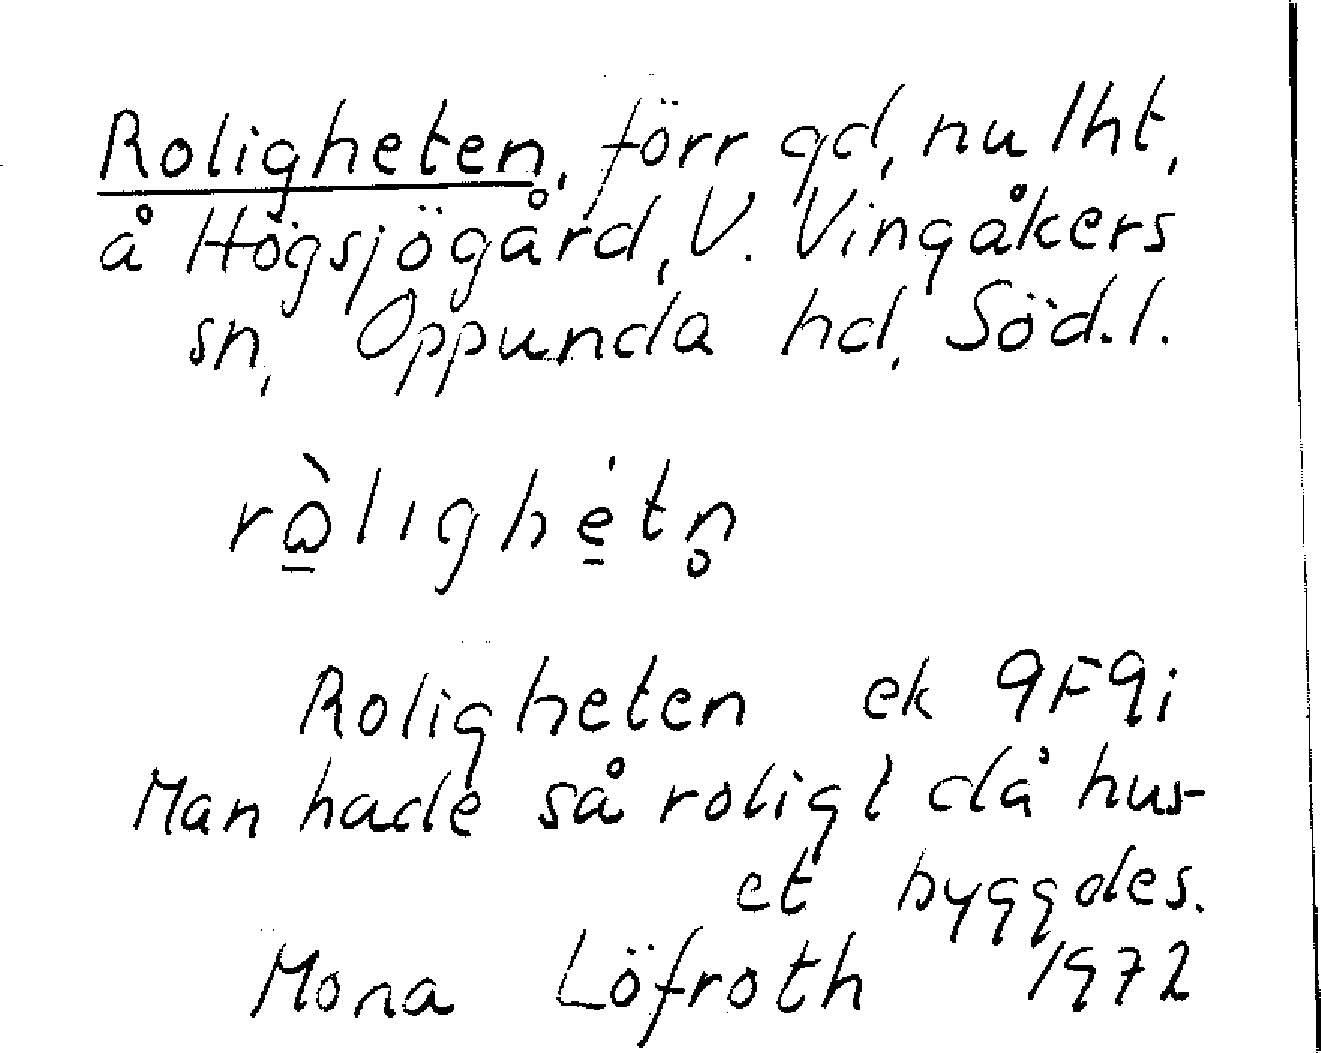 Roligheten, förr gd, nu lht,
å Högsjögård, V. Vingåkers
sn, Oppunda hd, Söd.l.
rò̱lighé̱tn̥
Roligheten ek 9F9i
Man hade så roligt då hus-
et byggdes.
Mona Löfroth 1972